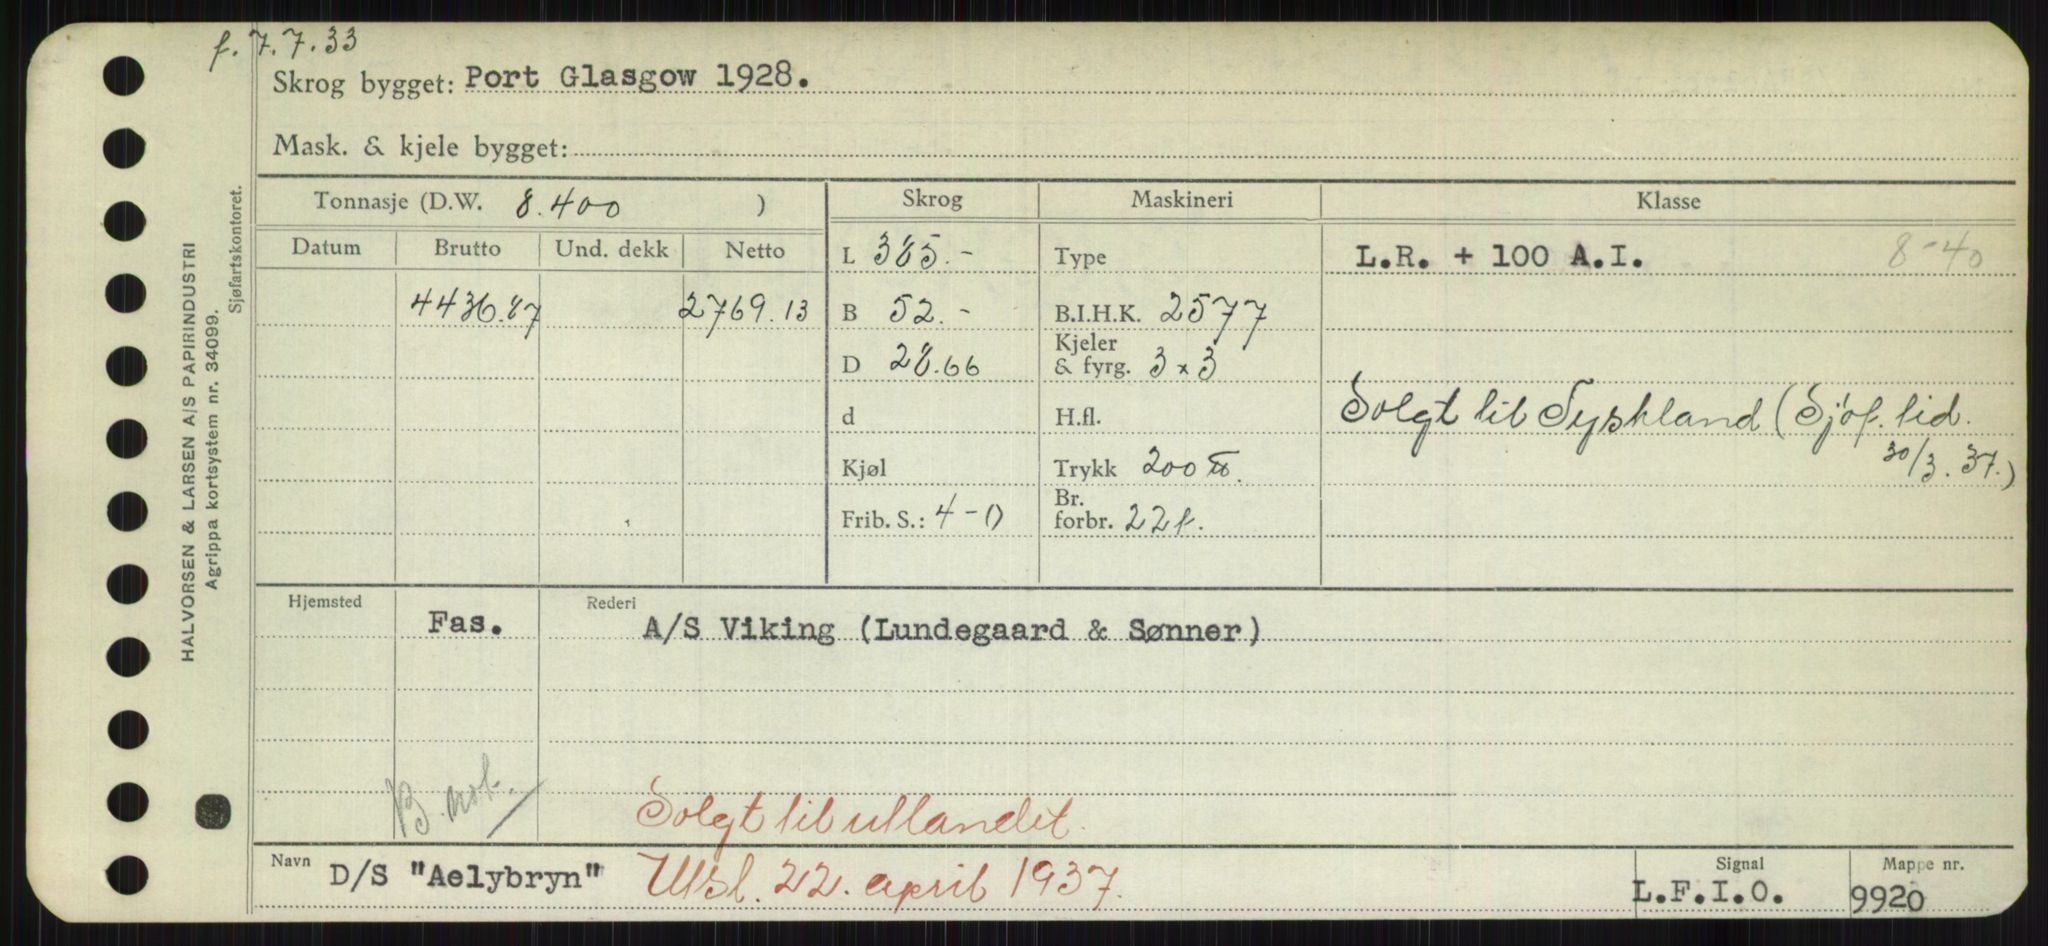 f. 7.7.33
Skrog bygget: Port Glasgow 1928.
Mask. & kjele bygget:
Tonnasje (D.W. 8.400 ) Skrog Maskineri Klasse
Datum Brutto Und. dekk Netto L 385.- Type L.R. + 100 A.I. 8-40
4436.87 2769.13 B 52.- B.I.H.K. 2577
D 28.66 Kjeler & fyrg. 3 x 3
d H.fl. Solgt til Tyskland (Sjöf. tid.
Kjøl Trykk 200 lb. 30/3.37.)
Frib. S.: 4-0 Br. forbr. 22 t.
Hjemsted Fas. Rederi A/S Viking (Lundegaard & Sønner)
B. not.
Solgt til utlandet.
Navn D/S "Aelybryn" Utsl. 22. april 1937. Signal L.F.I.O. Mappe nr. 9920
HALVORSEN & LARSEN A/S PAPIRINDUSTRI
Agrippa kortsystem nr. 34099.
Sjøfartskontoret.